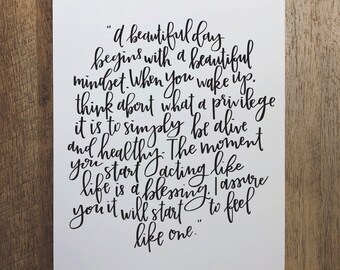 "A beautiful day
begins with a beautiful
mindset. When you wake up,
think about what a privilege
it is to simply be alive
and healthy. The moment
you start acting like
life is a blessing. I assure
you it will start to feel
like one."